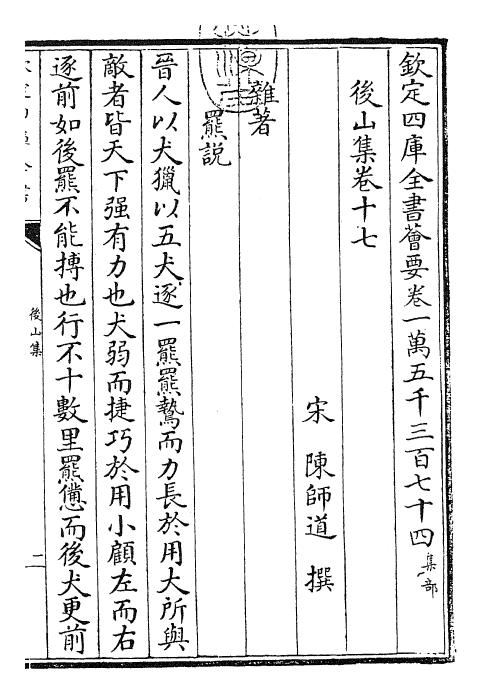 欽定四庫全書薈要卷一萬五千三百七十四 集部
後山集卷十七
宋 陳師道 撰
雜著
羆説
晉人以犬獵以五犬逐一羆羆鷙而力長於用大所與
敵者皆天下强有力也犬弱而捷巧於用小顧左而右
逐前如後羆不能搏也行不十數里羆憊而後犬更前
後山集